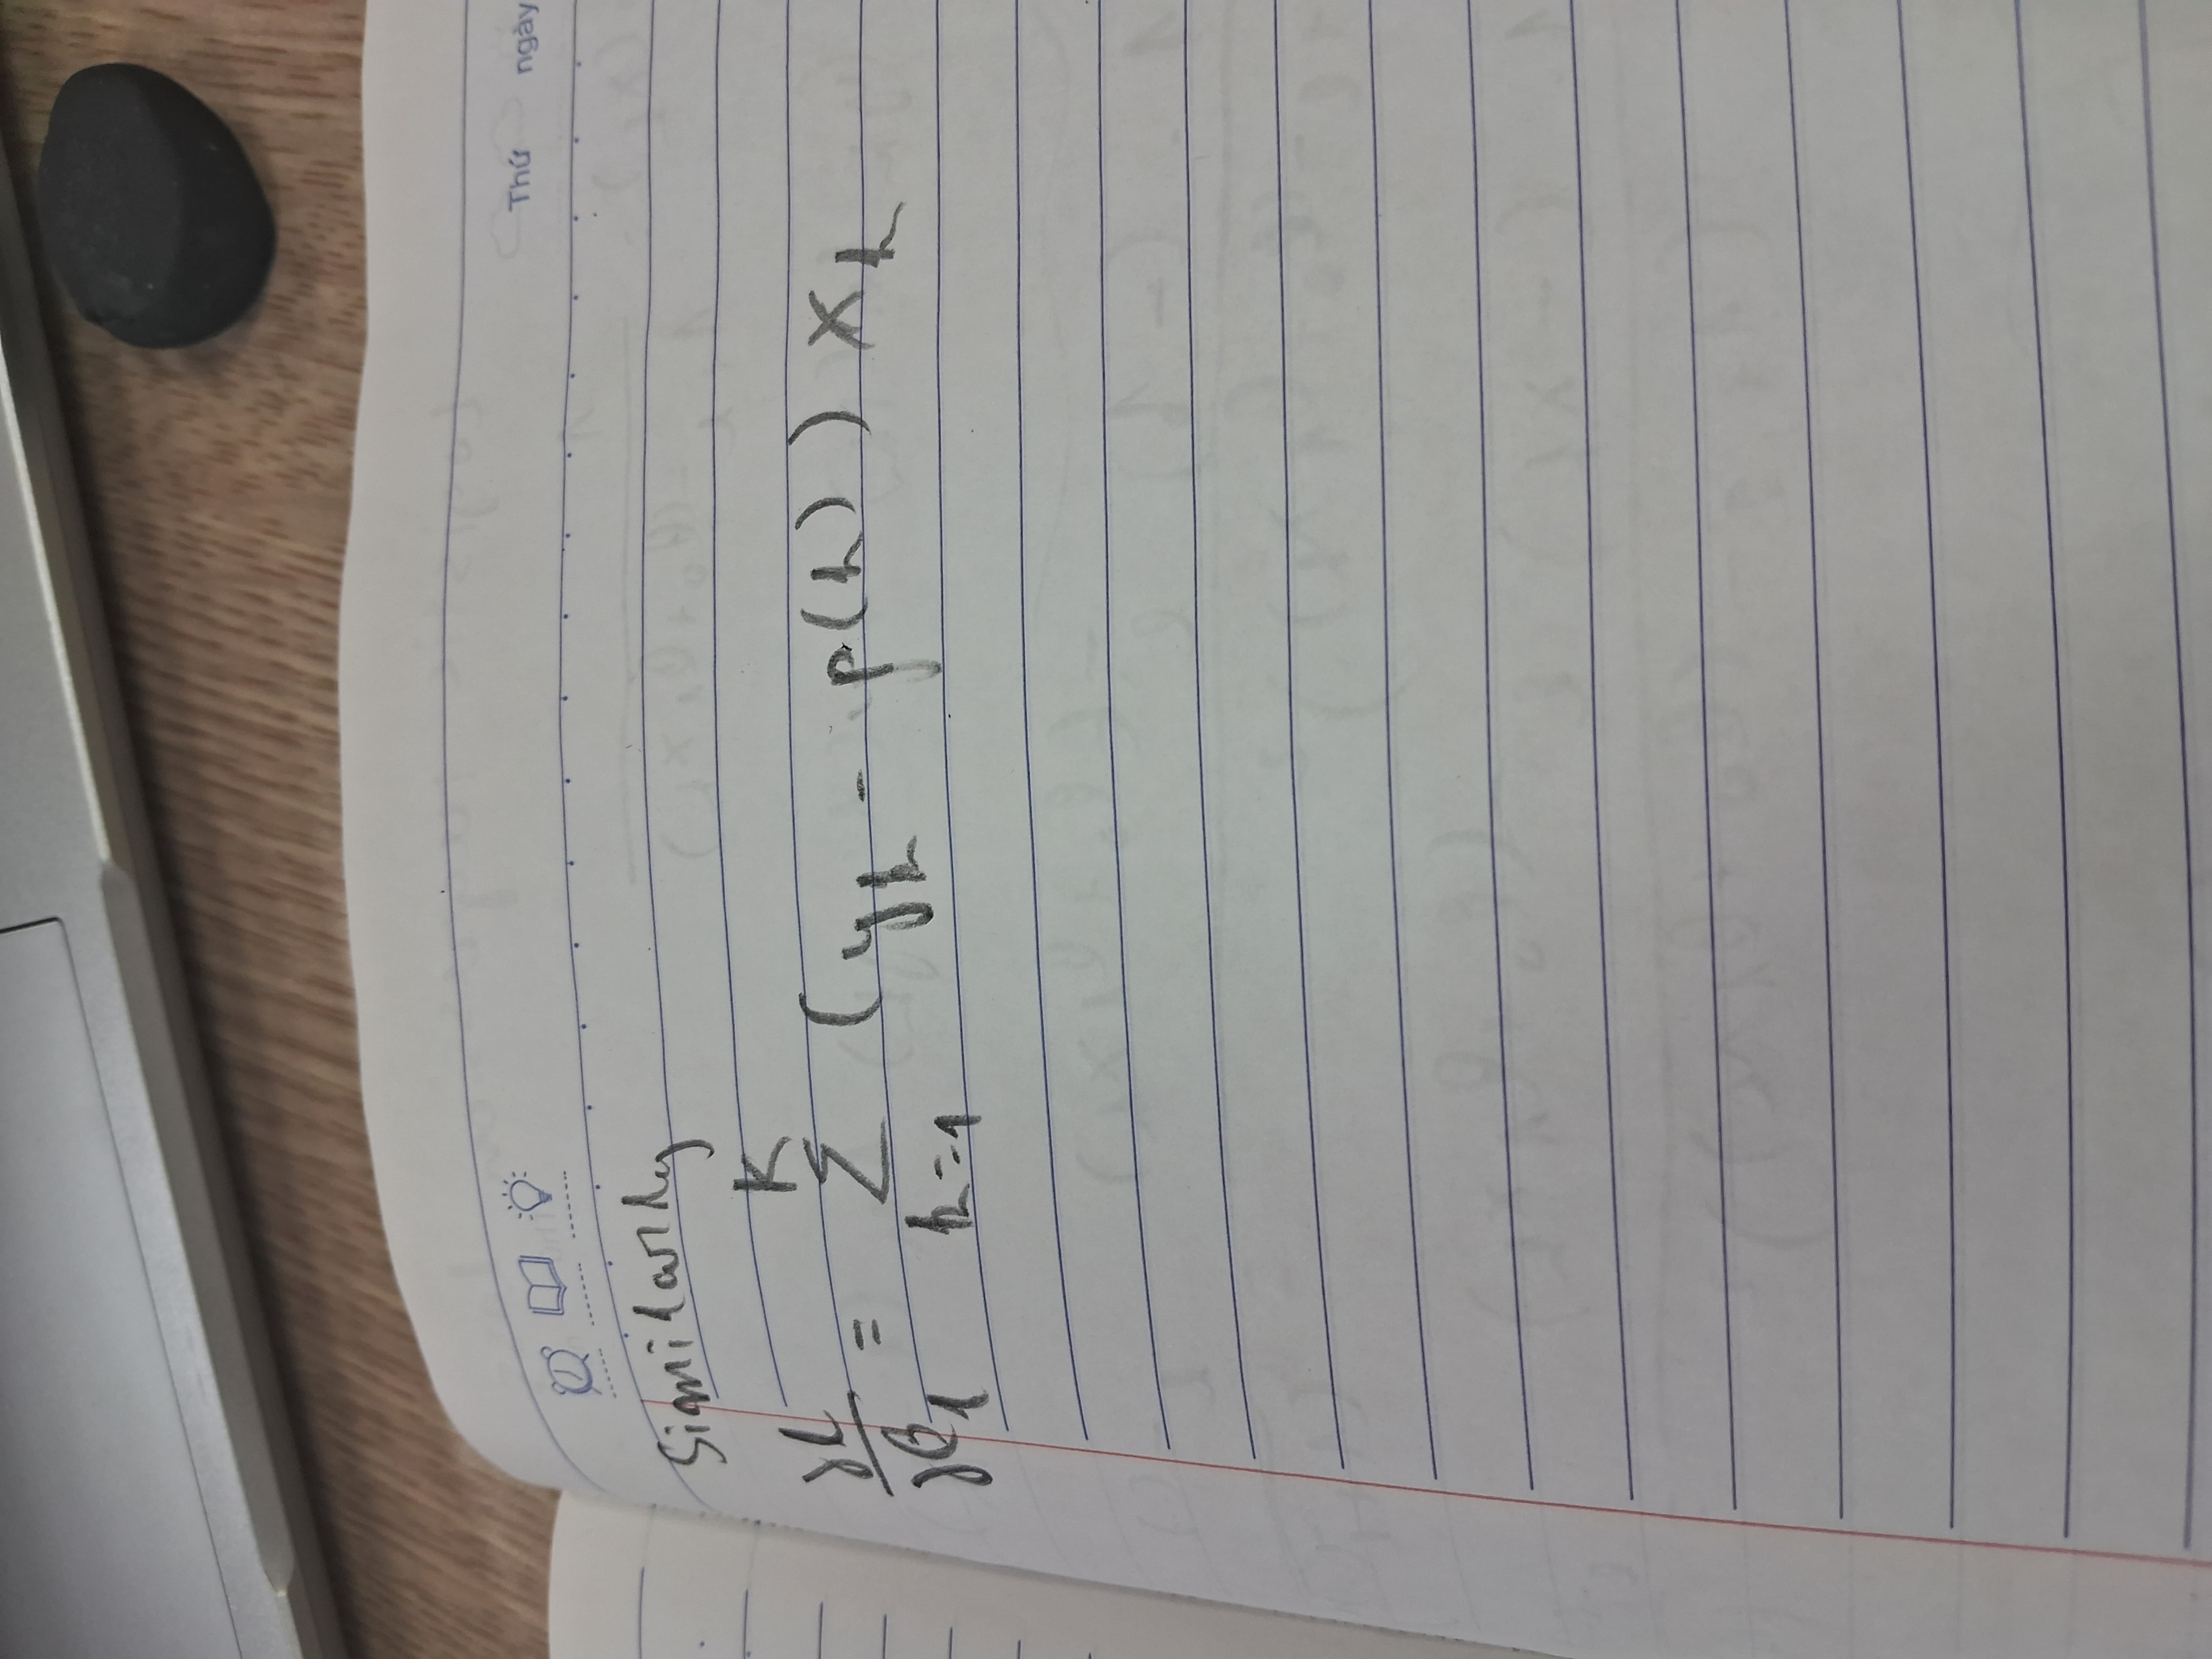 Thứ ngày
Similarly
∂l/∂θ₁ = Σ_{k=1}^{K} (y_k - p(k)) x_k